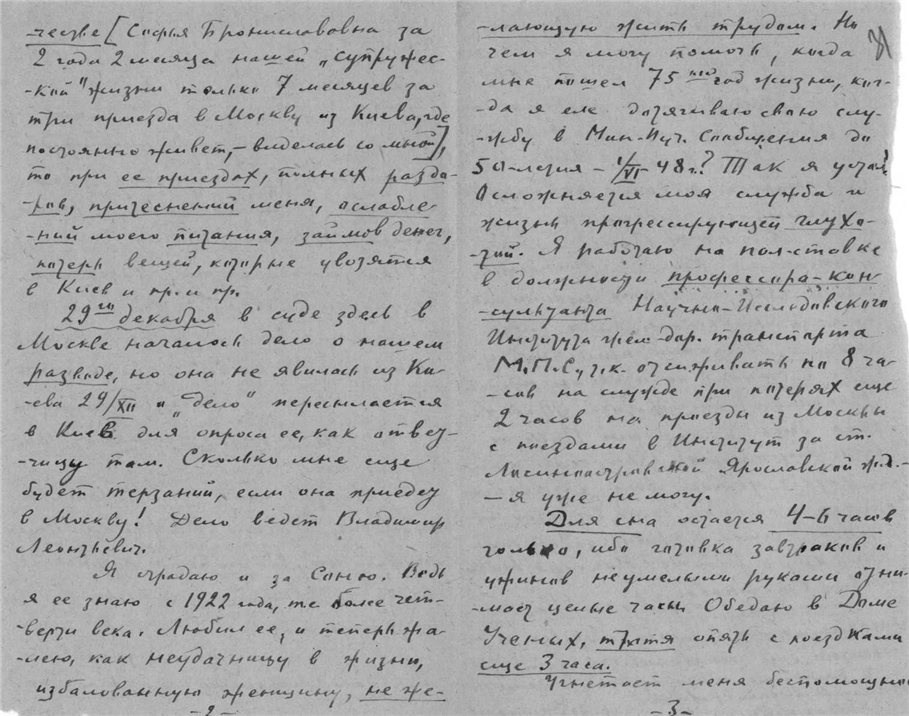 -честве [Софья Брониславовна за
2 года 2 месяца нашей „супружес-
-кой" жизни только 7 месяцев за
три приезда в Москву из Киева, где
постоянно живет, – виделась со мной],
то при ее приездах, полных раздо-
-ров, притеснений меня, ослабле-
-ний моего питания, займов денег,
потерь вещей, которые увозятся
в Киев и пр. и пр.
29го декабря в суде здесь в
Москве началось дело о нашем
разводе, но она не явилась из Ки-
-ева 29/XII и „дело" пересылается
в Киев для опроса ее, как ответ-
-чицу там. Сколько мне еще
будет терзаний, если она приедет
в Москву! Дело ведет Владимир
Леонтьевич.
Я страдаю и за Соню. Ведь
я ее знаю с 1922 года, т.е. более чет-
-верти века. Любил ее, и теперь жа-
-лею, как неудачницу в жизни,
избалованную женщину, не же-
-2-
-лающую жить трудом. Но
чем я могу помочь, когда
мне пошел 75ый год жизни, ког-
-да я еле дотягиваю свою слу-
-жбу в Мин. Пут. Сообщения до
50-летия – 1/VI-48 г.? Так я устал!
Осложняется моя служба и
жизнь прогрессирующей глухо-
-той. Я работаю на пол-ставке
в должности профессора-кон-
-сультанта Научно-Исследовского
Института жел-дор. транспорта
М.П.С, т.к. отсиживать по 8 ча-
-сов на службе при потерях еще
2 часов на проезды из Москвы
с поездами в Институт за ст.
Лосиноостровской Ярославской ж.д. –
– я уже не могу.
Для сна остается 4-6 часов
только, ибо готовка завтраков и
ужинов неумелыми руками отни-
-мает целые часы. Обедаю в Доме
Ученых, тратя опять с поездками
еще 3 часа.
Угнетает меня беспомощно
-3-